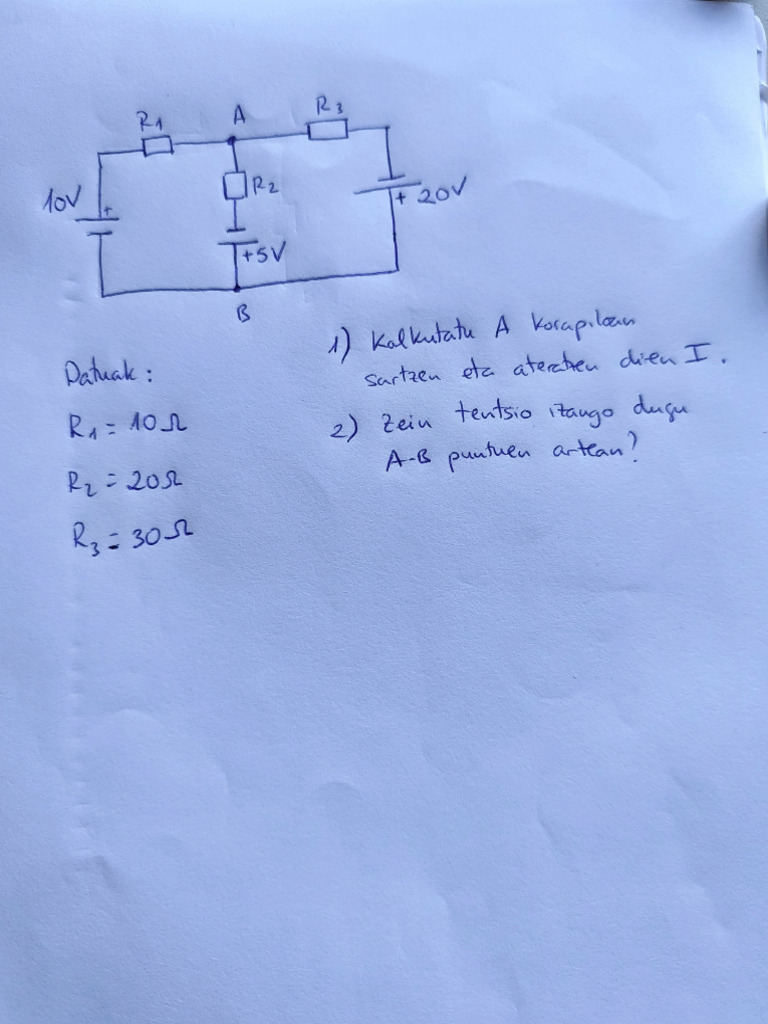 R1
A
R3
10V
+
R2
+ 20V
+5V
B
Datuak:
R1 = 10Ω
R2 = 20Ω
R3 = 30Ω
1) Kalkutatu A korapiloan
sartzen eta ateratzen diren I.
2) Zein tentsio izango dugu
A-B puntuen artean?